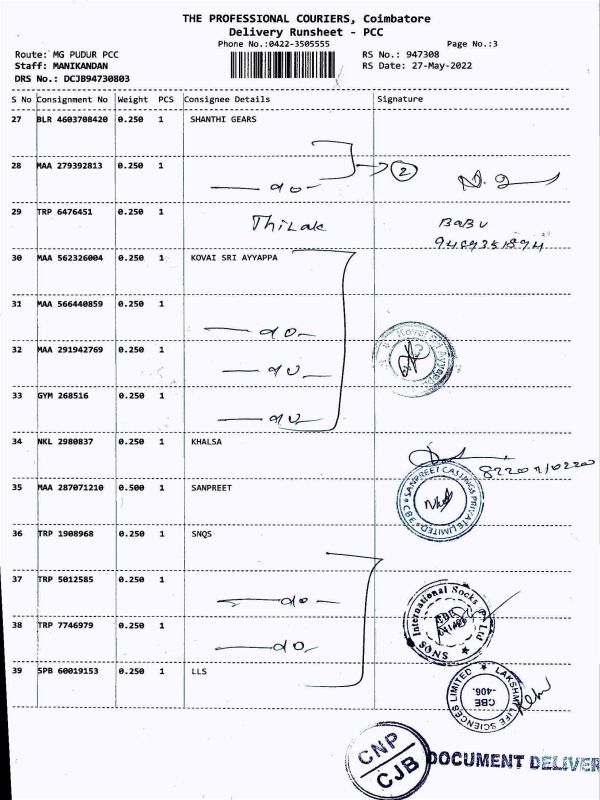 THE PROFESSIONAL COURIERS, Coimbatore
Delivery Runsheet - PCC
Phone No.:0422-3505555 Page No.:3
Route: MG PUDUR PCC RS No.: 947308
Staff: MANIKANDAN RS Date: 27-May-2022
DRS No.: DCJB94730803
S No Consignment No Weight PCS Consignee Details Signature
27 BLR 4603708420 0.250 1 SHANTHI GEARS
28 MAA 279392813 0.250 1
do 2
29 TRP 6476451 0.250 1 Thilak BABU
30 MAA 562326004 0.250 1 KOVAI SRI AYYAPPA
31 MAA 566440859 0.250 1
do
32 MAA 291942769 0.250 1
do
33 GYM 268516 0.250 1
do
34 NKL 2980837 0.250 1 KHALSA
35 MAA 287071210 0.500 1 SANPREET
SANPREET CASTINGS PRIVATE LIMITED CBE
36 TRP 1908968 0.250 1 SNQS
37 TRP 5012585 0.250 1
do
38 TRP 7746979 0.250 1
do
SNQS International Socks (P) Ltd
39 SPB 60019153 0.250 1 LLS
LAKSHMI LIFE SCIENCES LIMITED
CBE
-406.
CNP
CJB
DOCUMENT DELIVER